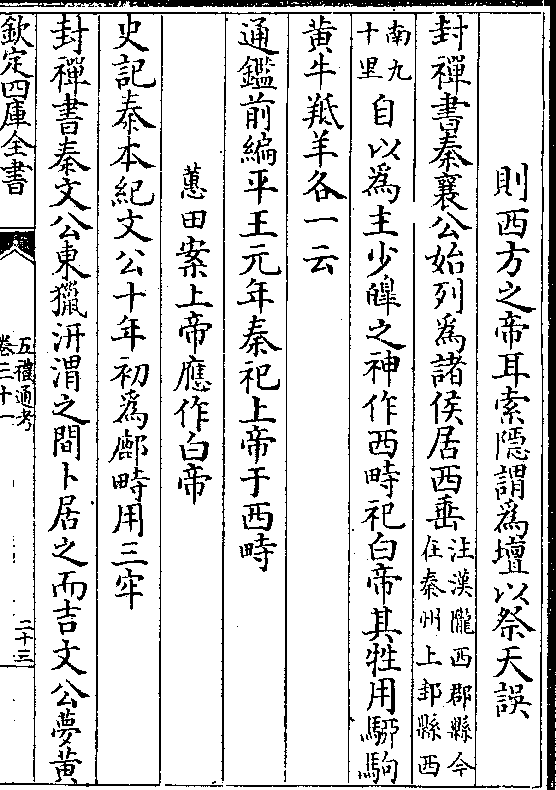 則西方之帝耳索隱謂為壇以祭天誤
封禪書秦襄公始列為諸侯居西垂注漢隴西郡縣今在秦州上邽縣西
南九十里自以為主少皥之神作西畤祀白帝其牲用駵駒
黄牛羝羊各一云
通鑑前編平王元年秦祀上帝于西畤
蕙田案上帝應作白帝
史記秦本紀文公十年初為鄜畤用三牢
封禪書秦文公東獵汧渭之間卜居之而吉文公夢黄
欽定四庫全書
五禮通考
卷三十一
二十三